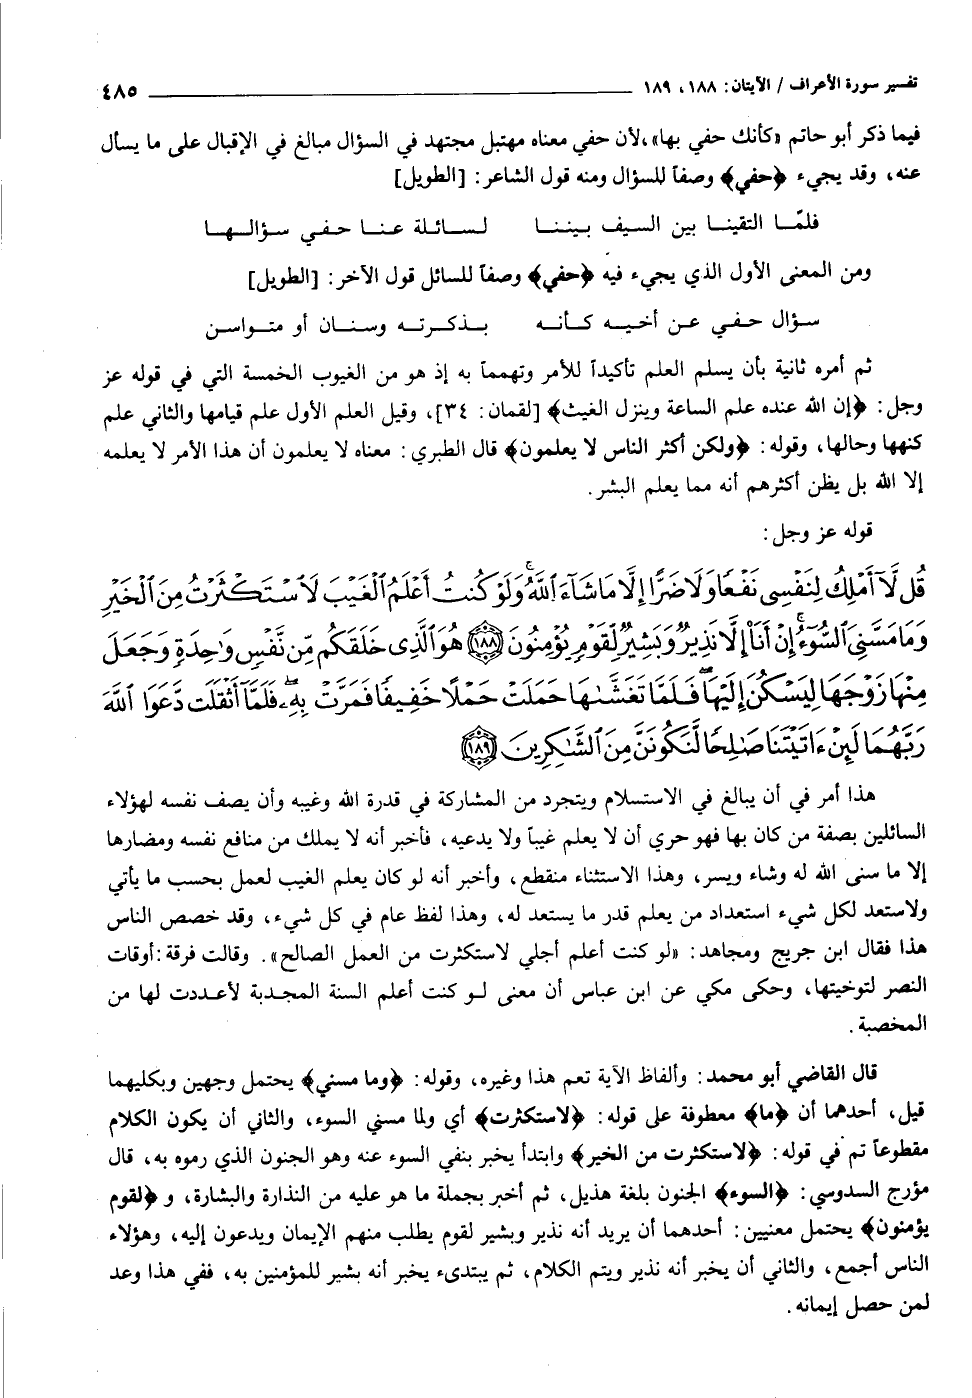 تفسير سورة الأعراف / الآيتان: ١٨٨، ١٨٩ ــــــــــ ٤٨٥
فيما ذكر أبو حاتم «كأنك حفي بها»، لأن حفي معناه مهتبل مجتهد في السؤال مبالغ في الإقبال على ما يسأل
عنه، وقد يجيء ﴿حفي﴾ وصفاً للسؤال ومنه قول الشاعر: [الطويل]
فلمّـا التقينـا بين السيف بيننـا لسـائلة عنـا حفـي سـؤالـهـا
ومن المعنى الأول الذي يجيء فيه ﴿حفي﴾ وصفاً للسائل قول الآخر: [الطويل]
سـؤال حفـي عن أخيـه كـأنـه بـذكـرتـه وسنـان أو متـواسـن
ثم أمره ثانية بأن يسلم العلم تأكيداً للأمر وتهمماً به إذ هو من الغيوب الخمسة التي في قوله عز
وجل: ﴿إن الله عنده علم الساعة وينزل الغيث﴾ [لقمان: ٣٤]، وقيل العلم الأول علم قيامها والثاني علم
كنهها وحالها، وقوله: ﴿ولكن أكثر الناس لا يعلمون﴾ قال الطبري: معناه لا يعلمون أن هذا الأمر لا يعلمه
إلا الله بل يظن أكثرهم أنه مما يعلم البشر.
قوله عز وجل:
قُل لَّآ أَمْلِكُ لِنَفْسِى نَفْعًا وَلَا ضَرًّا إِلَّا مَا شَآءَ ٱللَّهُ ۚ وَلَوْ كُنتُ أَعْلَمُ ٱلْغَيْبَ لَٱسْتَكْثَرْتُ مِنَ ٱلْخَيْرِ
وَمَا مَسَّنِىَ ٱلسُّوٓءُ ۚ إِنْ أَنَا۠ إِلَّا نَذِيرٌ وَبَشِيرٌ لِّقَوْمٍ يُؤْمِنُونَ ١٨٨ هُوَ ٱلَّذِى خَلَقَكُم مِّن نَّفْسٍ وَٰحِدَةٍ وَجَعَلَ
مِنْهَا زَوْجَهَا لِيَسْكُنَ إِلَيْهَا ۖ فَلَمَّا تَغَشَّىٰهَا حَمَلَتْ حَمْلًا خَفِيفًا فَمَرَّتْ بِهِۦ ۖ فَلَمَّآ أَثْقَلَت دَّعَوَا ٱللَّهَ
رَبَّهُمَا لَئِنْ ءَاتَيْتَنَا صَٰلِحًا لَّنَكُونَنَّ مِنَ ٱلشَّٰكِرِينَ ١٨٩
هذا أمر في أن يبالغ في الاستسلام ويتجرد من المشاركة في قدرة الله وغيبه وأن يصف نفسه لهؤلاء
السائلين بصفة من كان بها فهو حري أن لا يعلم غيباً ولا يدعيه، فأخبر أنه لا يملك من منافع نفسه ومضارها
إلا ما سنى الله له وشاء ويسر، وهذا الاستثناء منقطع، وأخبر أنه لو كان يعلم الغيب لعمل بحسب ما يأتي
ولاستعد لكل شيء استعداد من يعلم قدر ما يستعد له، وهذا لفظ عام في كل شيء، وقد خصص الناس
هذا فقال ابن جريج ومجاهد: «لو كنت أعلم أجلي لاستكثرت من العمل الصالح». وقالت فرقة: أوقات
النصر لتوخيتها، وحكى مكي عن ابن عباس أن معنى لـو كنت أعلم السنة المجدبة لأعـددت لها من
المخصبة.
قال القاضي أبو محمد: وألفاظ الآية تعم هذا وغيره، وقوله: ﴿وما مسني﴾ يحتمل وجهين وبكليهما
قيل، أحدهما أن ﴿ما﴾ معطوفة على قوله: ﴿لاستكثرت﴾ أي ولما مسني السوء، والثاني أن يكون الكلام
مقطوعاً تم في قوله: ﴿لاستكثرت من الخير﴾ وابتدأ يخبر بنفي السوء عنه وهو الجنون الذي رموه به، قال
مؤرج السدوسي: ﴿السوء﴾ الجنون بلغة هذيل، ثم أخبر بجملة ما هو عليه من النذارة والبشارة، و ﴿لقوم
يؤمنون﴾ يحتمل معنيين: أحدهما أن يريد أنه نذير وبشير لقوم يطلب منهم الإيمان ويدعون إليه، وهؤلاء
الناس أجمع، والثاني أن يخبر أنه نذير ويتم الكلام، ثم يبتدىء يخبر أنه بشير للمؤمنين به، ففي هذا وعد
لمن حصل إيمانه.